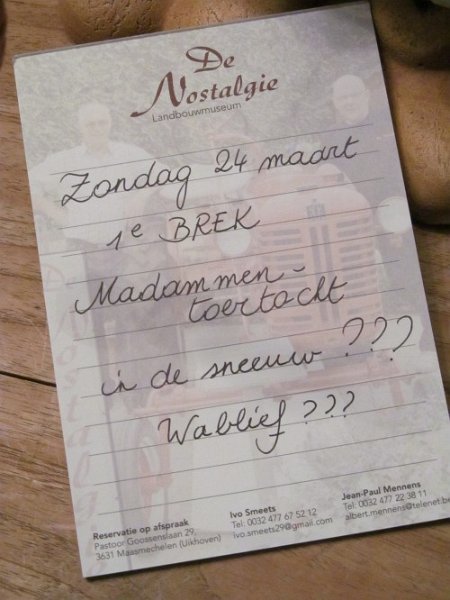 De
Nostalgie
Landbouwmuseum
Zondag 24 maart
1e BREK
Madammen-
toertocht
in de sneeuw ???
Wablief ???
Reservatie op afspraak
Pastoor Goossenslaan 29,
3631 Maasmechelen (Uikhoven)
Ivo Smeets
Tel: 0032 477 67 52 12
ivo.smeets29@gmail.com
Jean-Paul Mennens
Tel: 0032 477 22 38 11
albert.mennens@telenet.be